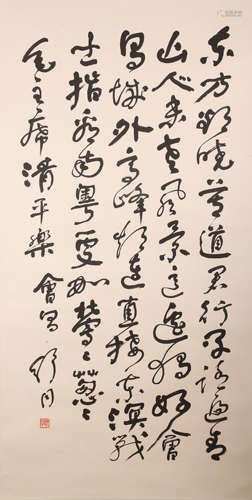 东方欲晓莫道君行早踏遍青
山人未老风景这边独好会
昌城外高峰颠连直接东溟战
士指看南粤更加郁郁葱葱
毛主席清平樂 會昌 舒同